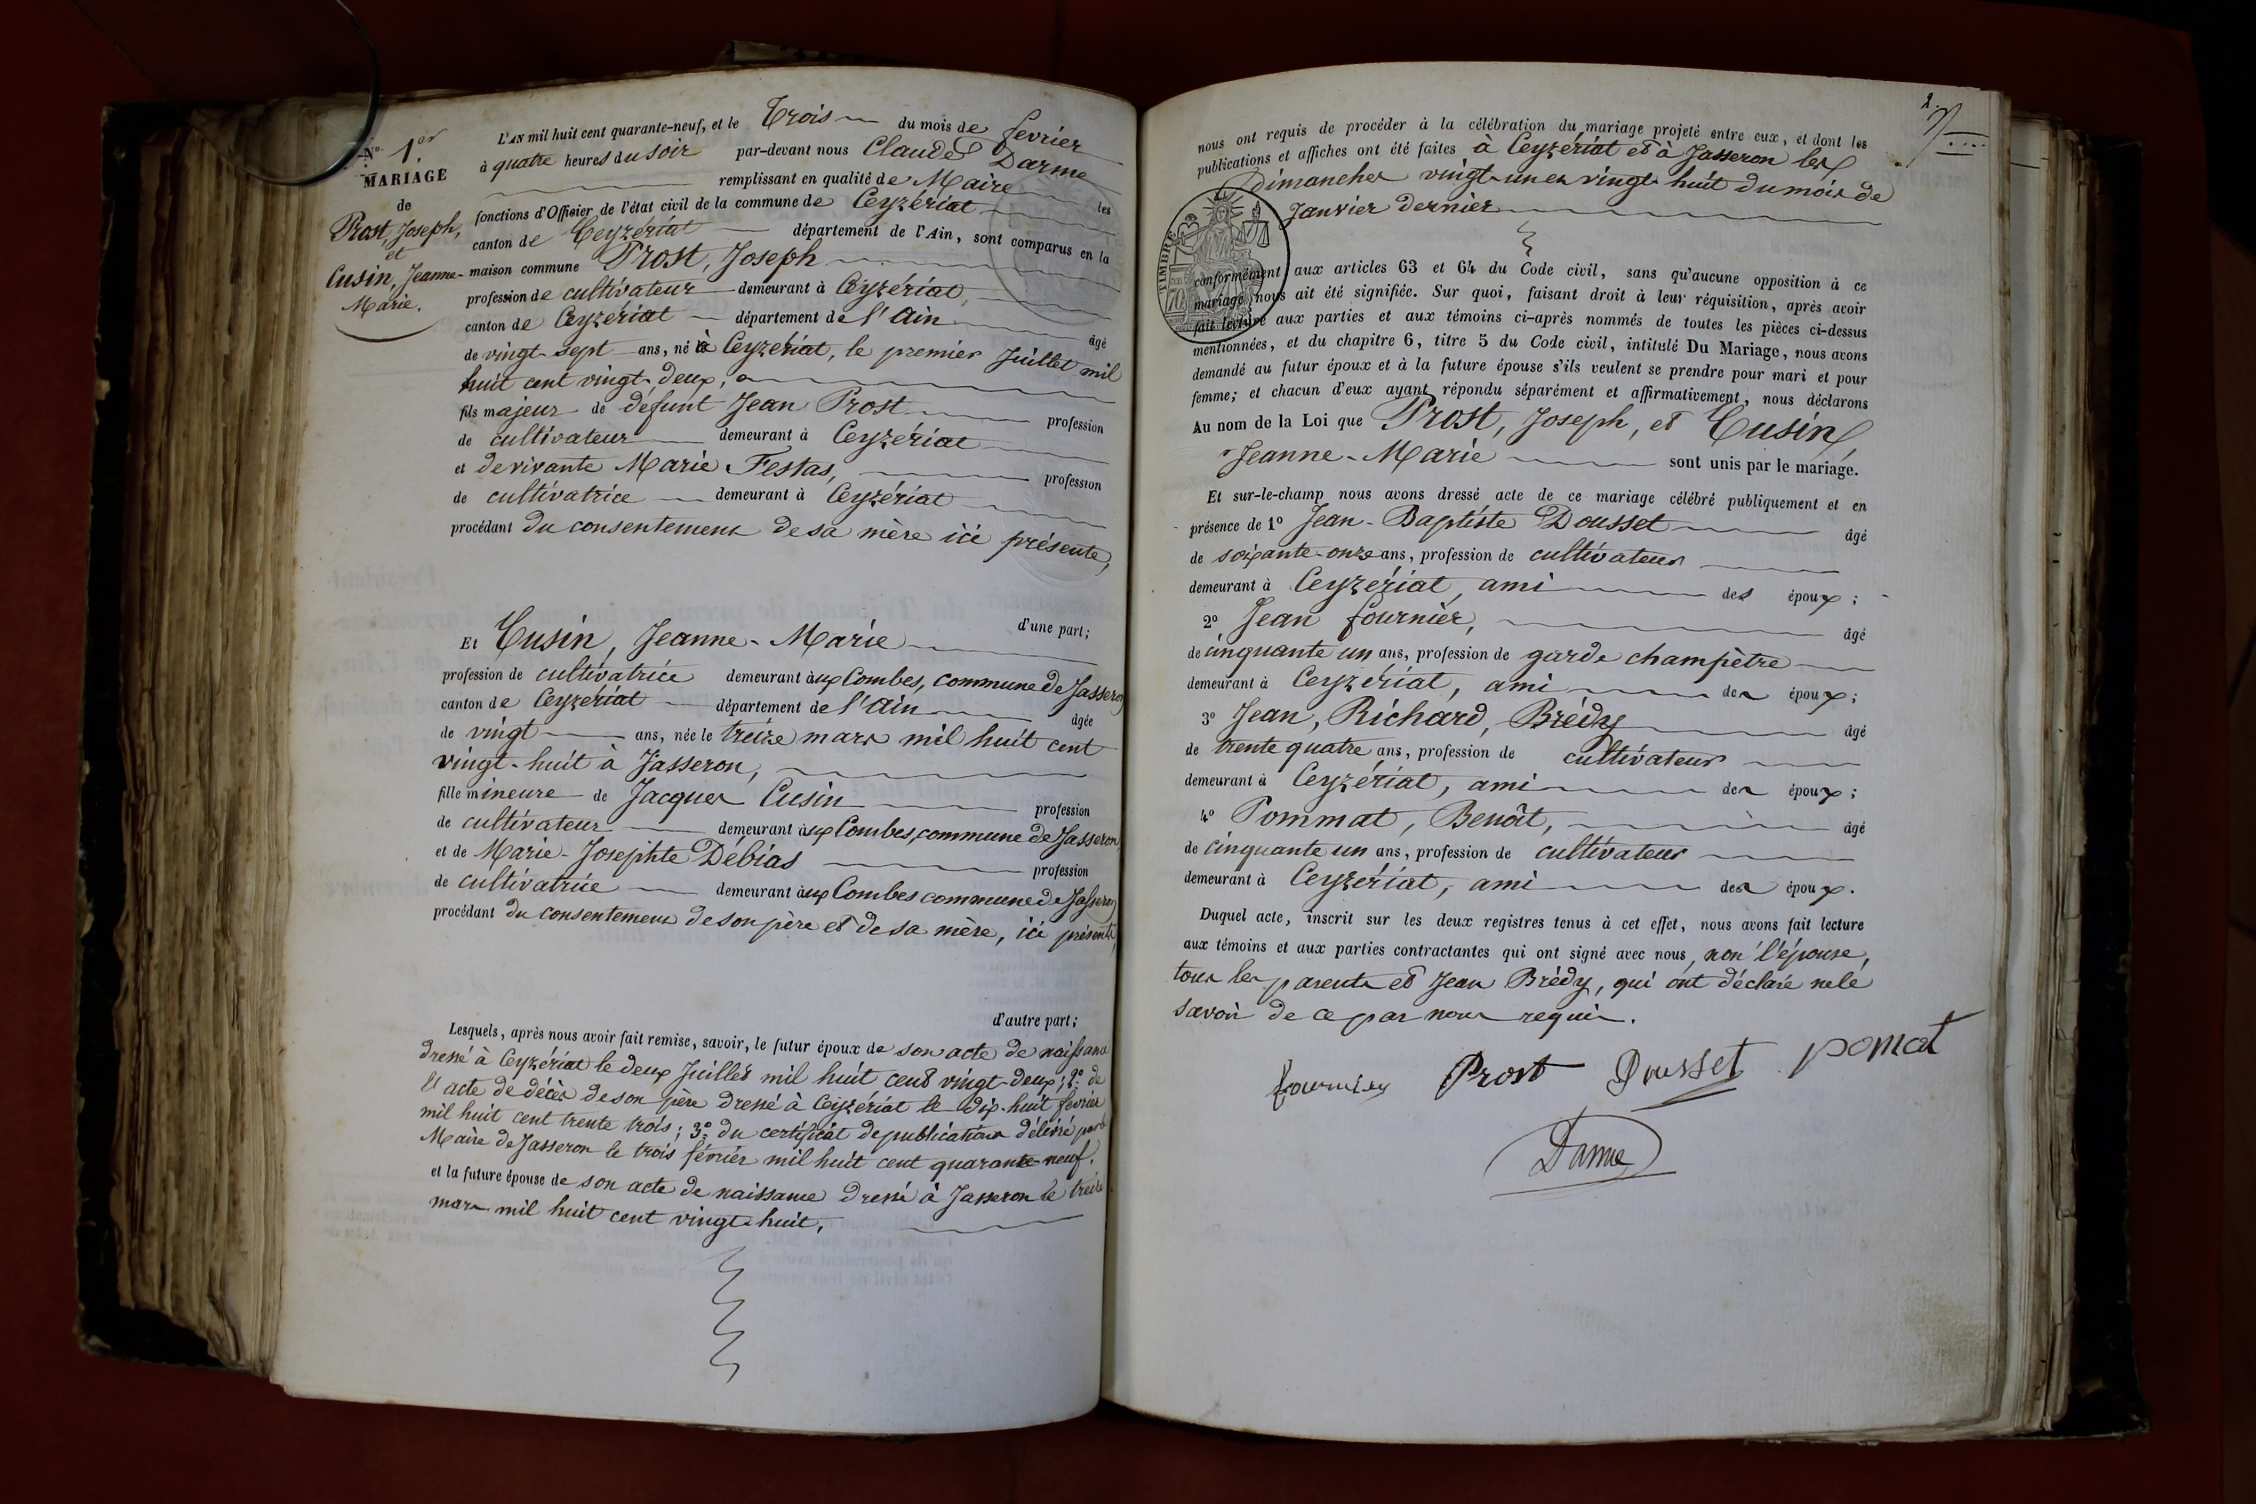 N° 1er
MARIAGE
de
Prost, Joseph,
et
Cusin, Jeanne-
Marie.
L'AN mil huit cent quarante-neuf, et le Trois du mois de février
à quatre heures du soir par-devant nous Claude Darme
remplissant en qualité de Maire les
fonctions d'Officier de l'état civil de la commune de Ceyzériat
canton de Ceyzériat département de l'Ain, sont comparus en la
maison commune Prost, Joseph
profession de cultivateur demeurant à Ceyzériat,
canton de Ceyzériat département de l'Ain âgé
de vingt-sept ans, né à Ceyzériat, le premier Juillet mil
huit cent vingt-deux,
fils majeur de défunt Jean Prost profession
de cultivateur demeurant à Ceyzériat
et de vivante Marie Festas, profession
de cultivatrice demeurant à Ceyzériat
procédant du consentement de sa mère ici présente,
d'une part;
Et Cusin, Jeanne-Marie
profession de cultivatrice demeurant aux Combes, commune de Jasseron
canton de Ceyzériat département de l'Ain âgée
de vingt ans, née le treize mars mil huit cent
vingt-huit à Jasseron,
fille mineure de Jacques Cusin profession
de cultivateur demeurant aux Combes, commune de Jasseron
et de Marie-Josephte Débias profession
de cultivatrice demeurant aux Combes commune de Jasseron
procédant du consentement de son père et de sa mère, ici présents,
d'autre part;
Lesquels, après nous avoir fait remise, savoir, le futur époux de son acte de naissance
dressé à Ceyzériat le deux Juillet mil huit cent vingt-deux; 2° de
l'acte de décès de son père dressé à Ceyzériat le dix-huit février
mil huit cent trente trois; 3° du certificat de publications délivré par le
Maire de Jasseron le trois février mil huit cent quarante-neuf.
et la future épouse de son acte de naissance dressé à Jasseron le treize
mars mil huit cent vingt-huit,
2.
nous ont requis de procéder à la célébration du mariage projeté entre eux, et dont les
publications et affiches ont été faites à Ceyzériat et à Jasseron les
dimanches vingt-un et vingt-huit du mois de
Janvier dernier
TIMBRE
70
conformément aux articles 63 et 64 du Code civil, sans qu'aucune opposition à ce
mariage nous ait été signifiée. Sur quoi, faisant droit à leur réquisition, après avoir
fait lecture aux parties et aux témoins ci-après nommés de toutes les pièces ci-dessus
mentionnées, et du chapitre 6, titre 5 du Code civil, intitulé Du Mariage, nous avons
demandé au futur époux et à la future épouse s'ils veulent se prendre pour mari et pour
femme; et chacun d'eux ayant répondu séparément et affirmativement, nous déclarons
Au nom de la Loi que Prost, Joseph, et Cusin,
Jeanne-Marie sont unis par le mariage.
Et sur-le-champ nous avons dressé acte de ce mariage célébré publiquement et en
présence de 1° Jean-Baptiste Dousset âgé
de soixante-onze ans, profession de cultivateur
demeurant à Ceyzériat, ami des époux;
2° Jean fournier, âgé
de cinquante un ans, profession de garde champêtre
demeurant à Ceyzériat, ami des époux;
3° Jean, Richard, Brédy âgé
de trente quatre ans, profession de cultivateur
demeurant à Ceyzériat, ami des époux;
4° Pommat, Benoît, âgé
de cinquante un ans, profession de cultivateur
demeurant à Ceyzériat, ami des époux.
Duquel acte, inscrit sur les deux registres tenus à cet effet, nous avons fait lecture
aux témoins et aux parties contractantes qui ont signé avec nous, non l'épouse,
tous les parents et Jean Brédy, qui ont déclaré ne le
savoir de ce par nous requis.
fournier Prost Dousset pomat
Darme